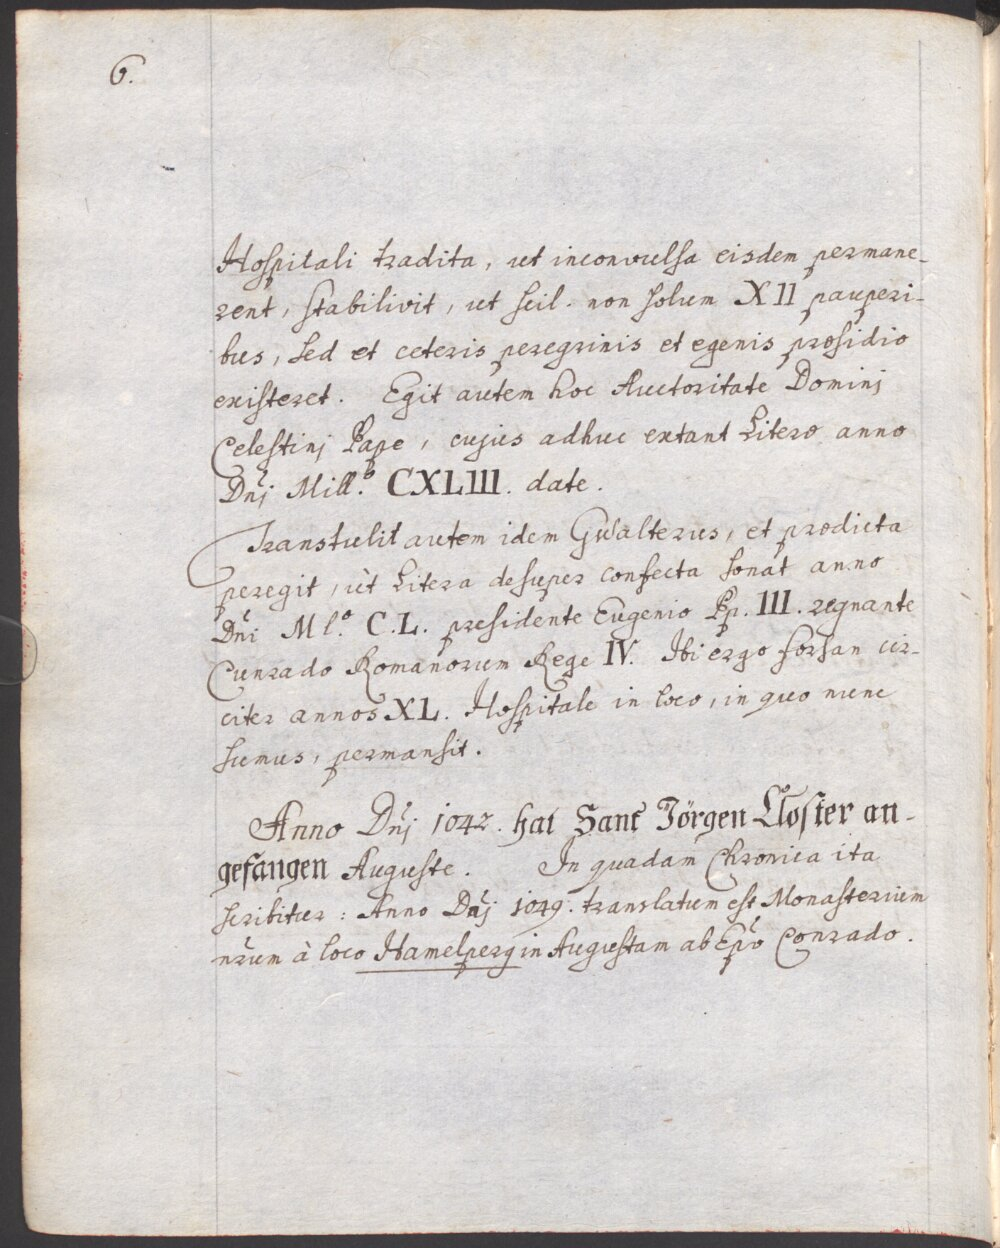 6.
Hospitali tradita, ut inconvulsa eisdem permane-
rent, stabilivit, ut scil. non solum XII pauperi-
bus, sed et ceteris peregrinis et egenis præsidio
existeret. Egit autem hoc Auctoritate Dominj
Celestinj Pape, cujus adhuc extant Literæ anno
Dnj Mill.º CXLIII. date.
Transtulit autem idem Gwalterus, et prædicta
peregit, ùt Litera desuper confecta sonat anno
Dni Ml.º C.L. presidente Eugenio Pp. III. regnante
Cunrado Romanorum Rege IV. Ibi ergo forsan cir-
citer annos XL. Hospitale in loco, in quo nunc
sumus, permansit.
Anno Dnj 1042. hat Sant Jörgen Closter an-
gefangen Auguste. In quadam Chronica ita
scribitur: Anno Dnj 1049. translatum est Monasterium
nrum à loco Hamelperg in Augustam ab Epo Conrado.